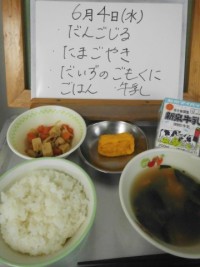 6月4日(水)
だんごじる
たまごやき
だいずのごもくに
ごはん 牛乳